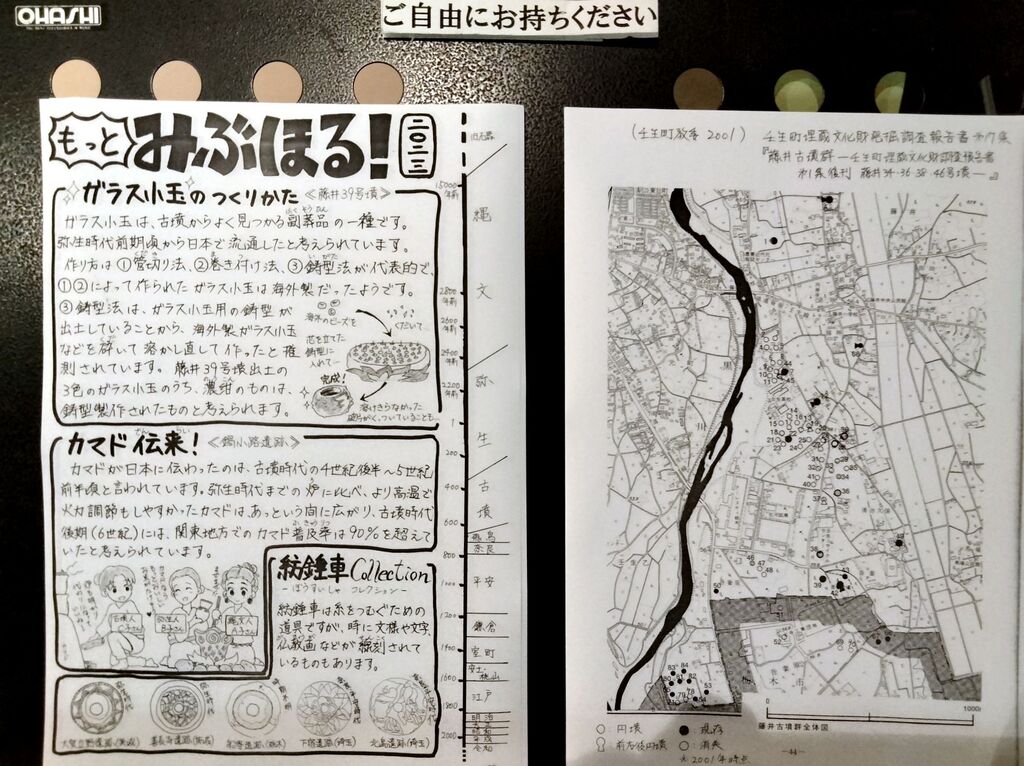 OHASHI
ご自由にお持ちください
もっと
みぶほる!
二〇二三
ガラス小玉のつくりかた
≪藤井39号墳≫
ガラス小玉は、古墳からよく見つかる副葬品の一種です。
弥生時代前期頃から日本で流通したと考えられています。
作り方は①管切り法、②巻き付け法、③鋳型法が代表的で、
①②によって作られたガラス小玉は海外製だったようです。
③鋳型法は、ガラス小玉用の鋳型が
出土していることから、海外製ガラス小玉
などを砕いて溶かし直して作ったと推
測されています。藤井39号墳出土の
3色のガラス小玉のうち、濃紺のものは、
鋳型製作されたものと考えられます。
海外のビーズを
くだいて…
芯を立てた
鋳型に
入れて…
完成!
溶けきらなかった
破片がくっついていることも…
カマド伝来!
≪鍋小路遺跡≫
カマドが日本に伝わったのは、古墳時代の4世紀後半~5世紀
前半頃と言われています。弥生時代までの炉に比べ、より高温で
火力調節もしやすかったカマドは、あっという間に広がり、古墳時代
後期(6世紀)には、関東地方でのカマド普及率は90%を超えて
いたと考えられています。
古墳人
弥生人
B子さん
縄文人
A子さん
紡錘車Collection
-ぼうすいしゃ コレクション-
紡錘車は糸をつむぐための
道具ですが、時に文様や文字、
仏教画などが線刻されて
いるものもあります。
下宿遺跡(埼玉)
北島遺跡(埼玉)
旧石器
15000
年前
縄
文
2800
年前
2600
年前
2400
年前
弥
2200
年前
1
生
200
古
400
墳
600
飛鳥
奈良
800
平安
1000
1200
鎌倉
1400
室町
安土・
桃山
1600
江戸
1800
明治
大正
昭和
平成
2000
令和
(壬生町教委 2001)
壬生町埋蔵文化財発掘調査報告書 第17集
『藤井古墳群 ―壬生町埋蔵文化財調査報告書
第1集復刊 藤井34・36・38・46号墳―』
黒
川
藤井
0
1000m
藤井古墳群全体図
○:円墳
●:現存
:前方後円墳
○:消失
※2001年時点
-44-